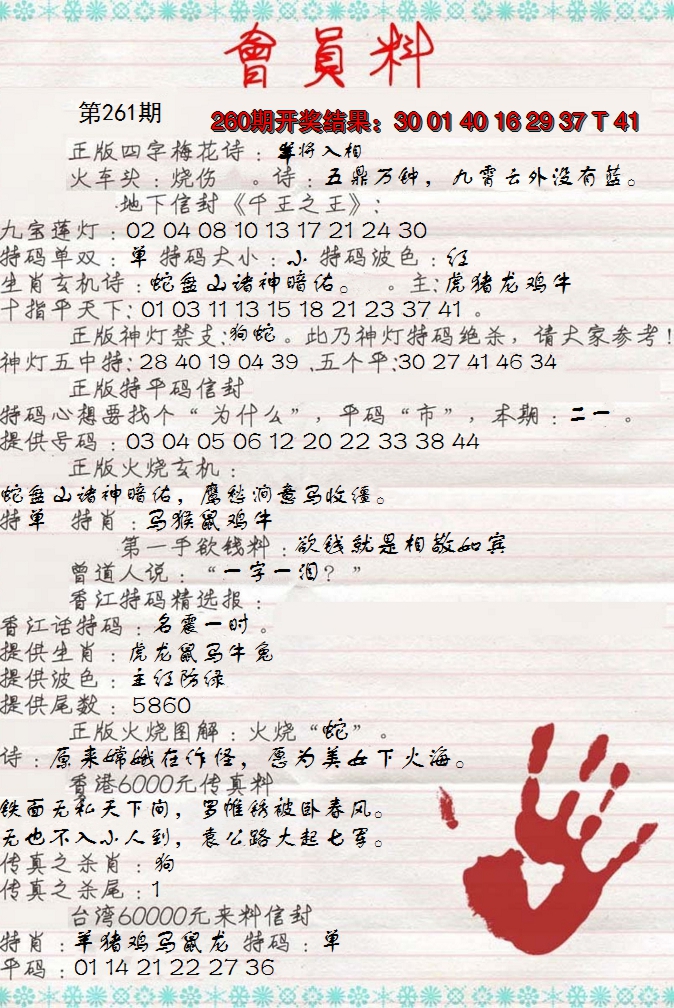 會員料
第261期
260期开奖结果：30 01 40 16 29 37 T 41
正版四字梅花诗：羊将入相
火车头：烧伤 。诗：五鼎万钟，九霄云外没有蓝。
地下信封《千王之王》：
九宝莲灯：02 04 08 10 13 17 21 24 30
特码单双：单 特码大小：小 特码波色：红
生肖玄机诗：蛇盘山诸神暗佑。 。主：虎猪龙鸡牛
十指平天下：01 03 11 13 15 18 21 23 37 41 。
正版神灯禁支：狗蛇 。此乃神灯特码绝杀，请大家参考！
神灯五中特：28 40 19 04 39 .五个平：30 27 41 46 34
正版特平码信封
特码心想要找个“为什么”，平码“市”，本期：二一 。
提供号码：03 04 05 06 12 20 22 33 38 44
正版火烧玄机：
蛇盘山诸神暗佑，鹰愁涧意马收缰。
特单 特肖：马猴鼠鸡牛
第一手欲钱料：欲钱就是相敬如宾
曾道人说：“一字一泪？”
香江特码精选报：
香江话特码：名震一时 。
提供生肖：虎龙鼠马牛兔
提供波色：主红防绿
提供尾数：5860
正版火烧图解：火烧“蛇” 。
诗：原来嫦娥在作怪，愿为美女下火海。
香港6000元传真料
铁面无私天下闻，罗帷绣被卧春风。
无也不入小人到，袁公路大起七军。
传真之杀肖：狗
传真之杀尾：1
台湾60000元来料信封
特肖：羊猪鸡马鼠龙 特码：单
平码：01 14 21 22 27 36